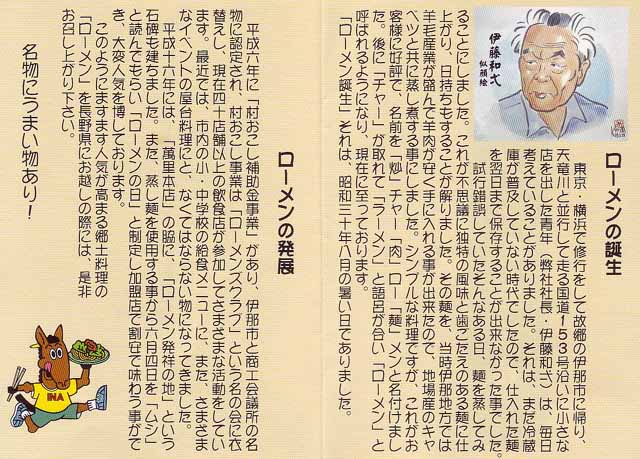 ローメンの誕生
伊藤和弌
似顔絵
東京・横浜で修行をして故郷の伊那市に帰り、
天竜川と並行して走る国道153号沿いに小さな
店を出した青年(弊社社長・伊藤和弌)は、毎日
考えていることがありました。それは、まだ冷蔵
庫が普及していない時代でしたので、仕入れた麺
を翌日まで保存することが出来なかった事でした。
試行錯誤していたそんなある日、麺を蒸してみ
ることにしました。これが不思議に独特の風味と歯ごたえのある麺に仕
上がり、日持ちもすることが解りました。その麺を、当時伊那地方では
羊毛産業が盛んで羊肉が安く手に入れる事が出来たので、地場産のキャ
ベツと共に蒸し煮する事にしました。シンプルな料理ですが、これがお
客様に好評で、名前を「炒」チャー「肉」ロー「麺」メンと名付けまし
た。後に「チャー」が取れて「ラーメン」と語呂が合い「ローメン」と
呼ばれるようになり、現在に至っております。
「ローメン誕生」それは、昭和三十年八月の暑い日でありました。
ローメンの発展
平成六年に「村おこし補助金事業」があり、伊那市と商工会議所の名
物に認定され、村おこし事業は「ローメンズクラブ」という名の会に衣
替えし、現在四十店舗以上の飲食店が参加してさまざまな活動をしてい
ます。最近では、市内の小・中学校の給食メニューに、また、さまざま
なイベントの屋台料理にと、なくてはならない物になってきました。
平成十六年には、「萬里本店」の脇に、「ローメン発祥の地」という
石碑も建ちました。また、蒸し麺を使用する事から六月四日を「ムシ」
と読んでもらい「ローメンの日」と制定し加盟店で割安で味わう事がで
き、大変人気を博しております。
このようにますます人気が高まる郷土料理の
「ローメン」を長野県にお越しの際には、是非
お召し上がり下さい。
名物にうまい物あり!
INA